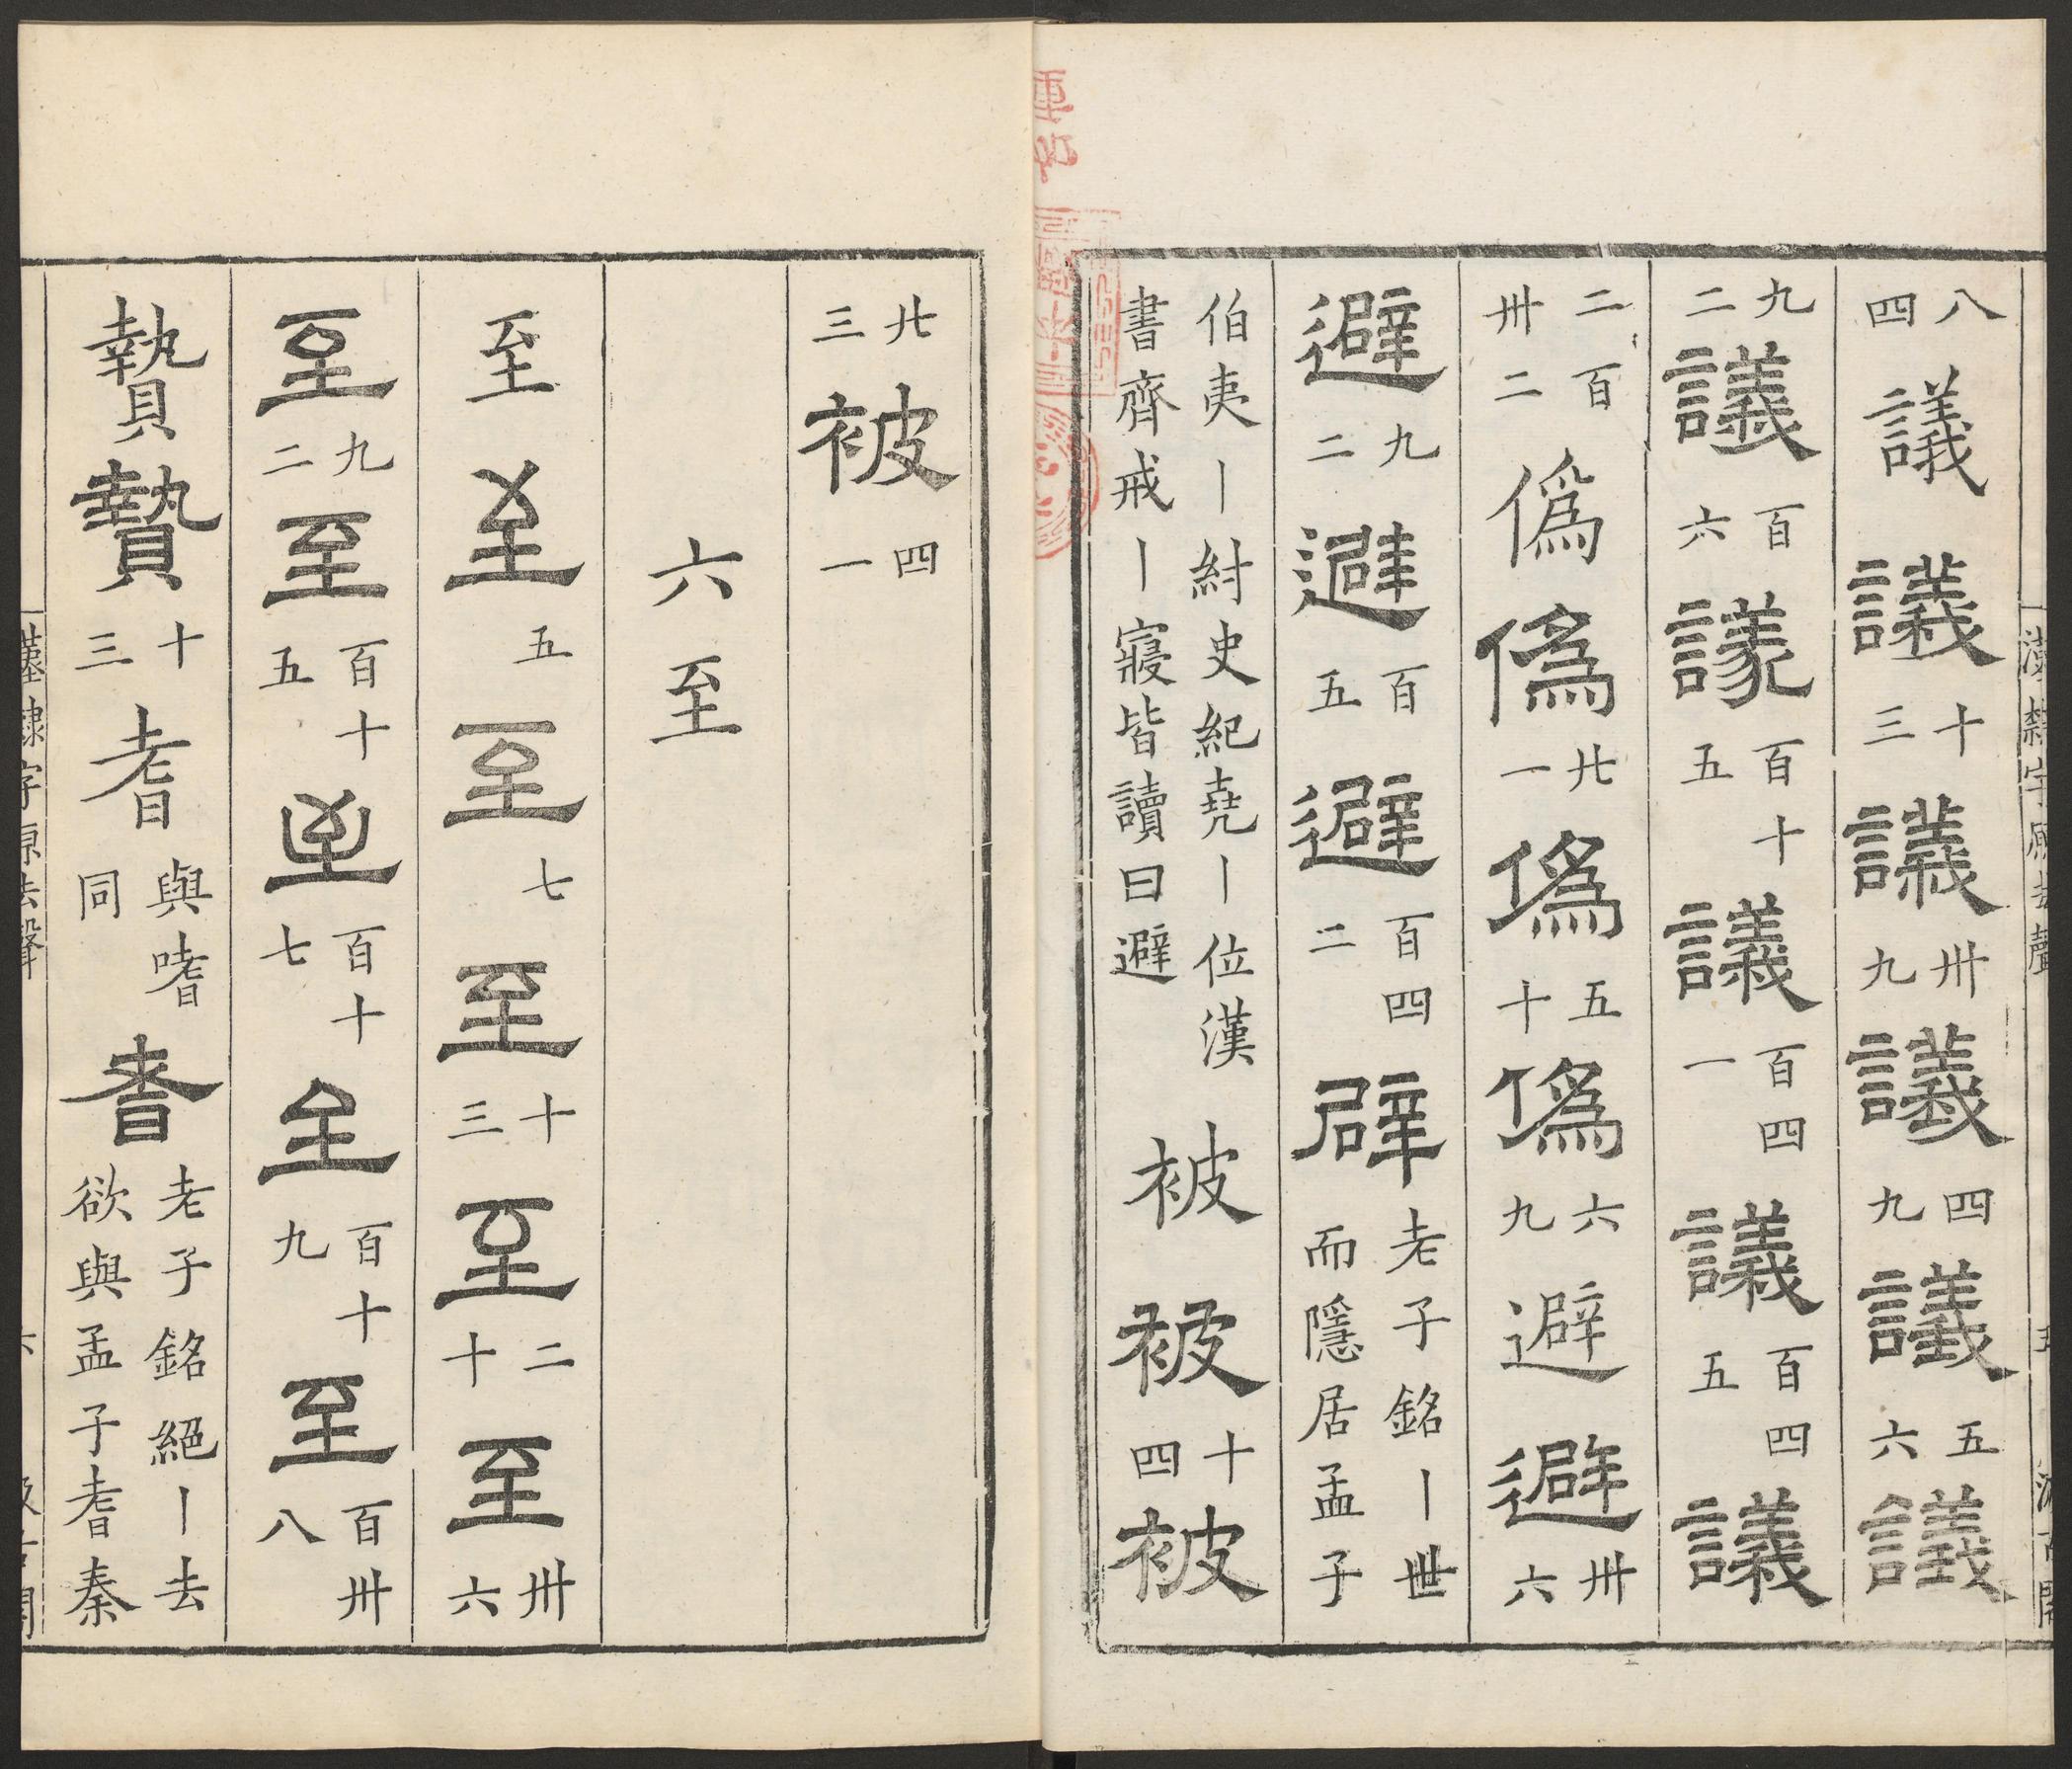 八四議議十三議卅九議四九議五六議
九二議百六議百十五議百四一議百四五議
二百卅二偽偽廿一偽五十偽六九避避卅六
避九二避百五避百四二辟老子銘丨世而隱居孟子
伯夷丨紂史紀堯丨位漢書齊戒丨寢皆讀曰避被被十四被
廿三被四一
六至
至至五至七至十三至二十至卅六
至九二至百十五至百十七至百十九至百卅八
贄贄十三耆與嗜同耆老子銘絕丨去欲與孟子耆秦
漢隸字原去聲
六